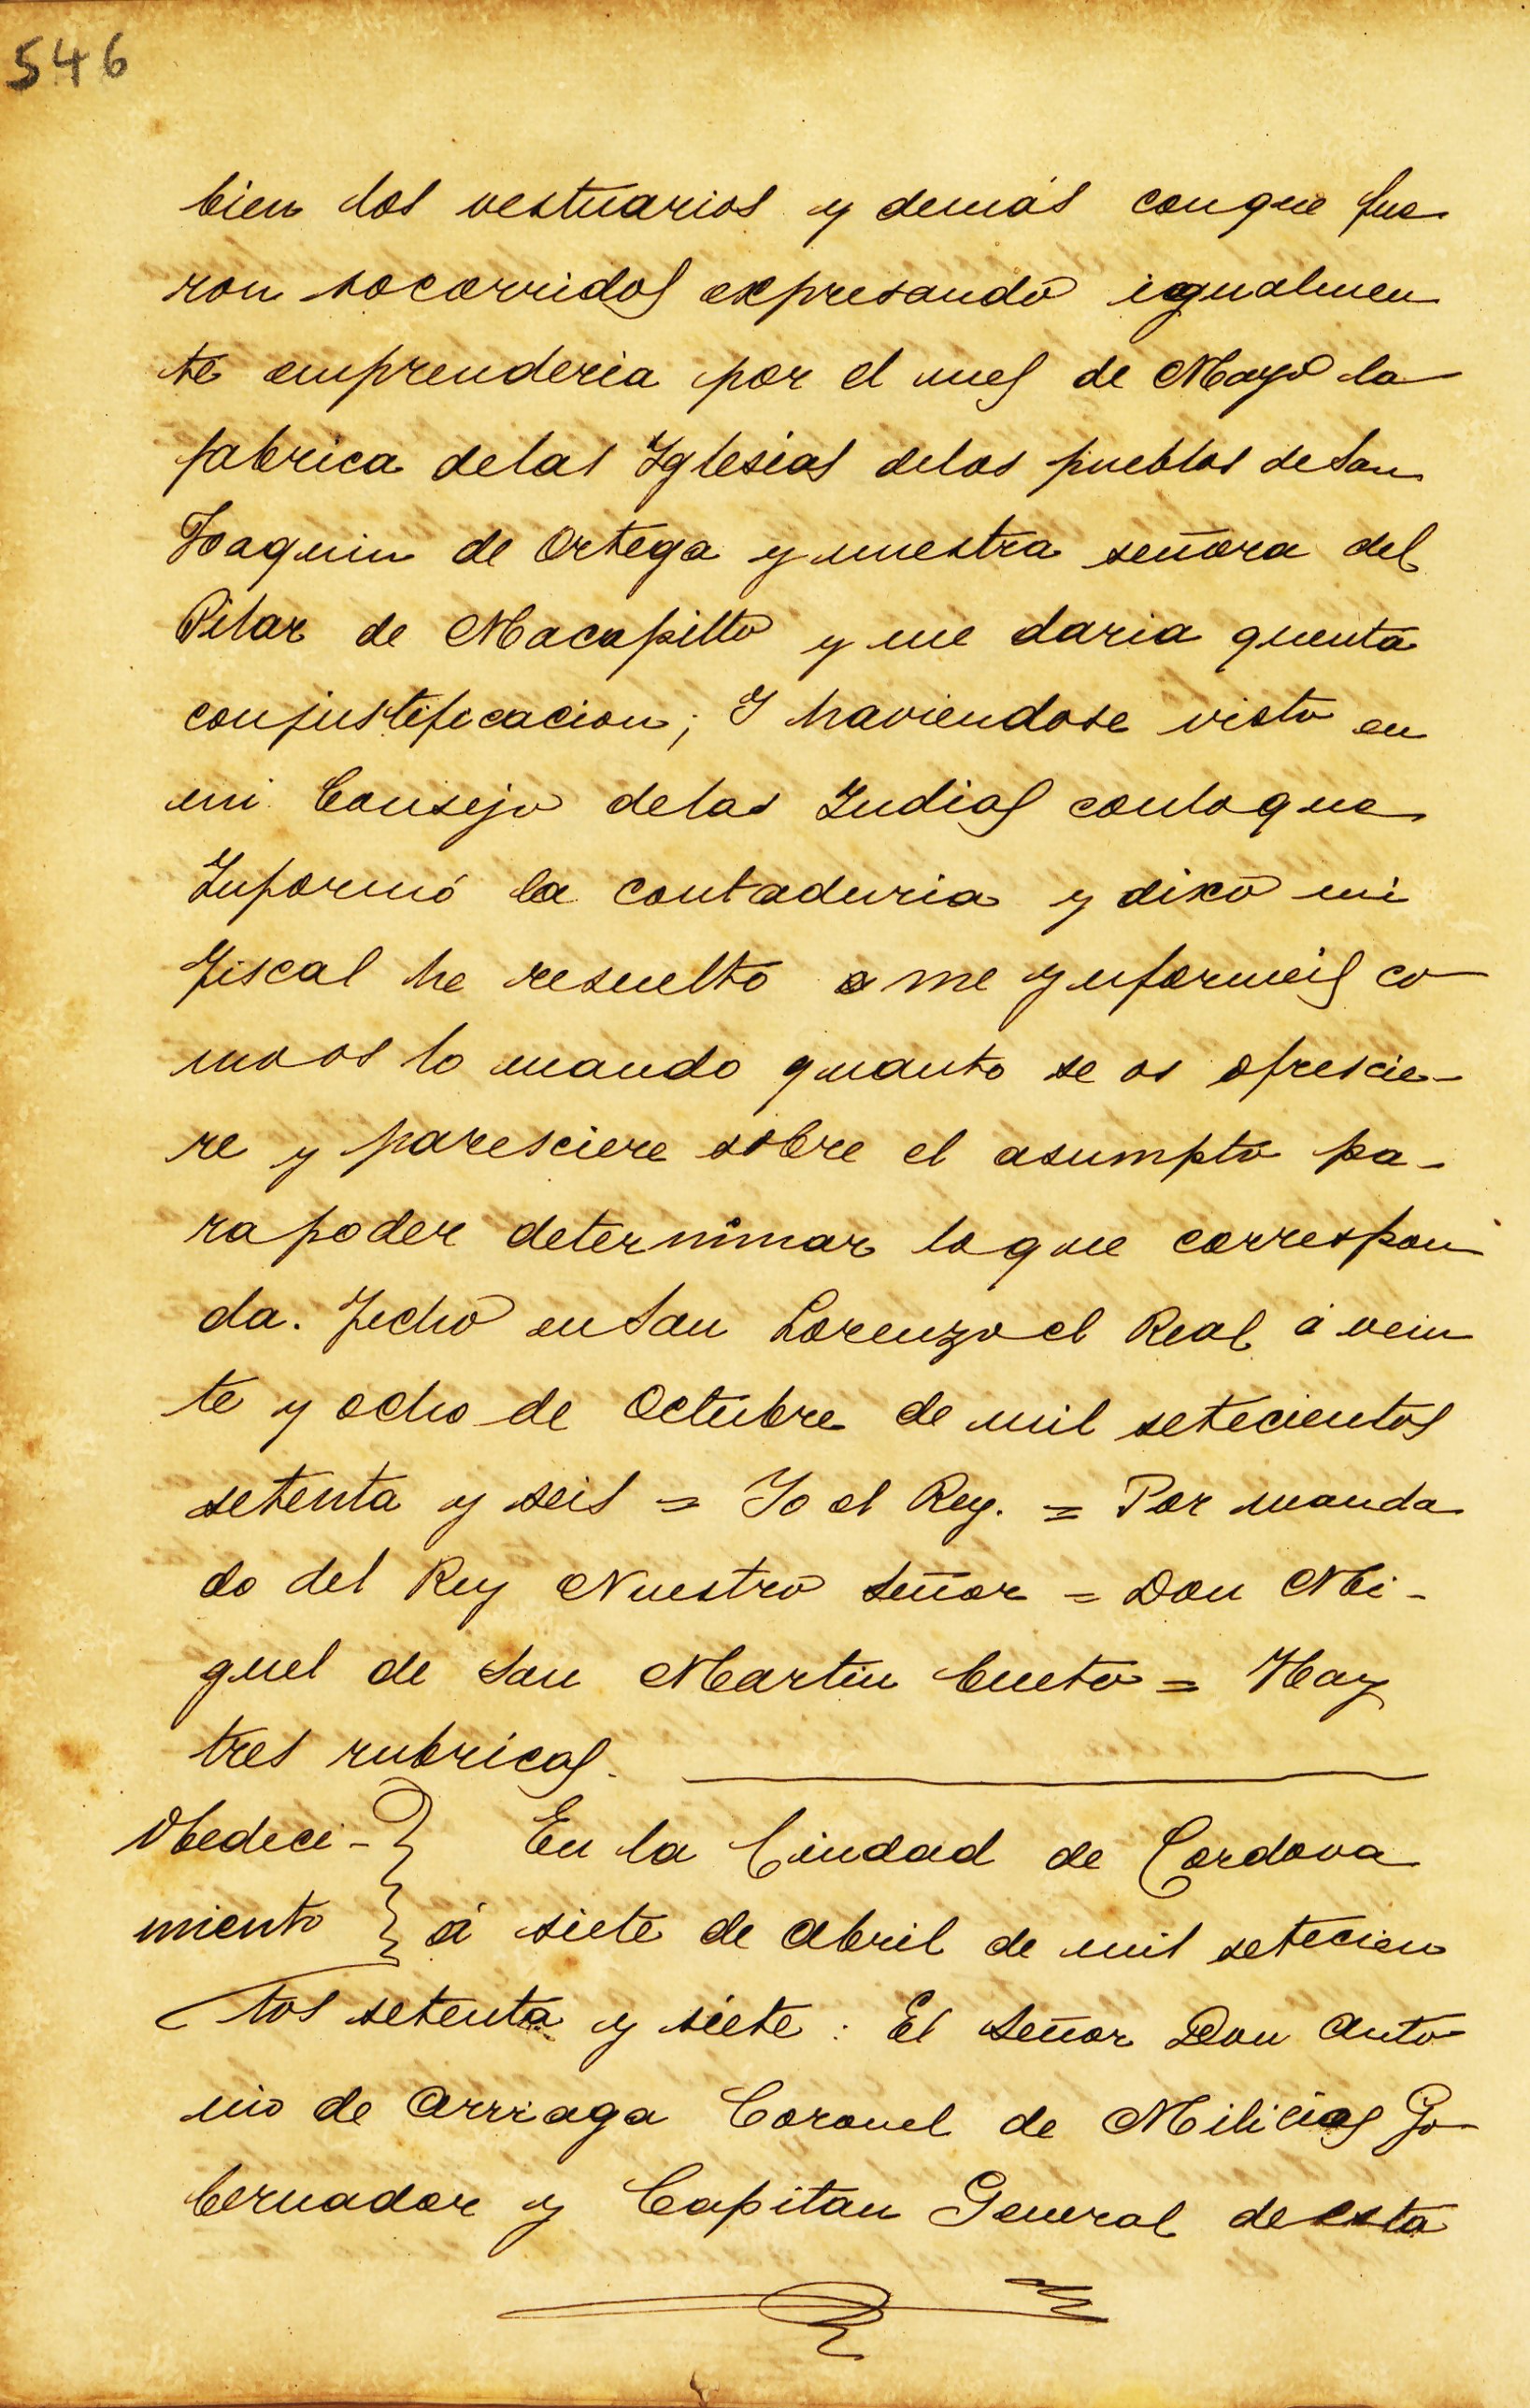 546
bien los vestuarios y demás conque fue
ron socorridos expresando igualmen
te emprenderia por el mes de Mayo la
fabrica delas Iglesias delos pueblos de San
Joaquin de Ortega y nuestra señora del
Pilar de Macapillo y me daria quenta
conjustificacion; Y haviendose visto en
mi Consejo delas Indias conloque
Informó la contaduria y dixo mi
Fiscal he resuelto me Ynformeis co
mo os lo mando quanto se os ofrescie-
re y paresciere sobre el asumpto pa-
rapoder determinar loque correspon
da. Fecho en San Lorenzo el Real á vein
te y ocho de Octubre de mil setecientos
setenta y seis = Yo el Rey. = Por manda
do del Rey Nuestro Señor = Don Mi-
guel de San Martin Cueto = Hay
tres rubricas.
Obedeci- En la Ciudad de Cordova
miento á siete de Abril de mil setecien
tos setenta y siete: El Señor Don Anto
nio de Arriaga Coronel de Milicias Go
bernador y Capitan General de esta